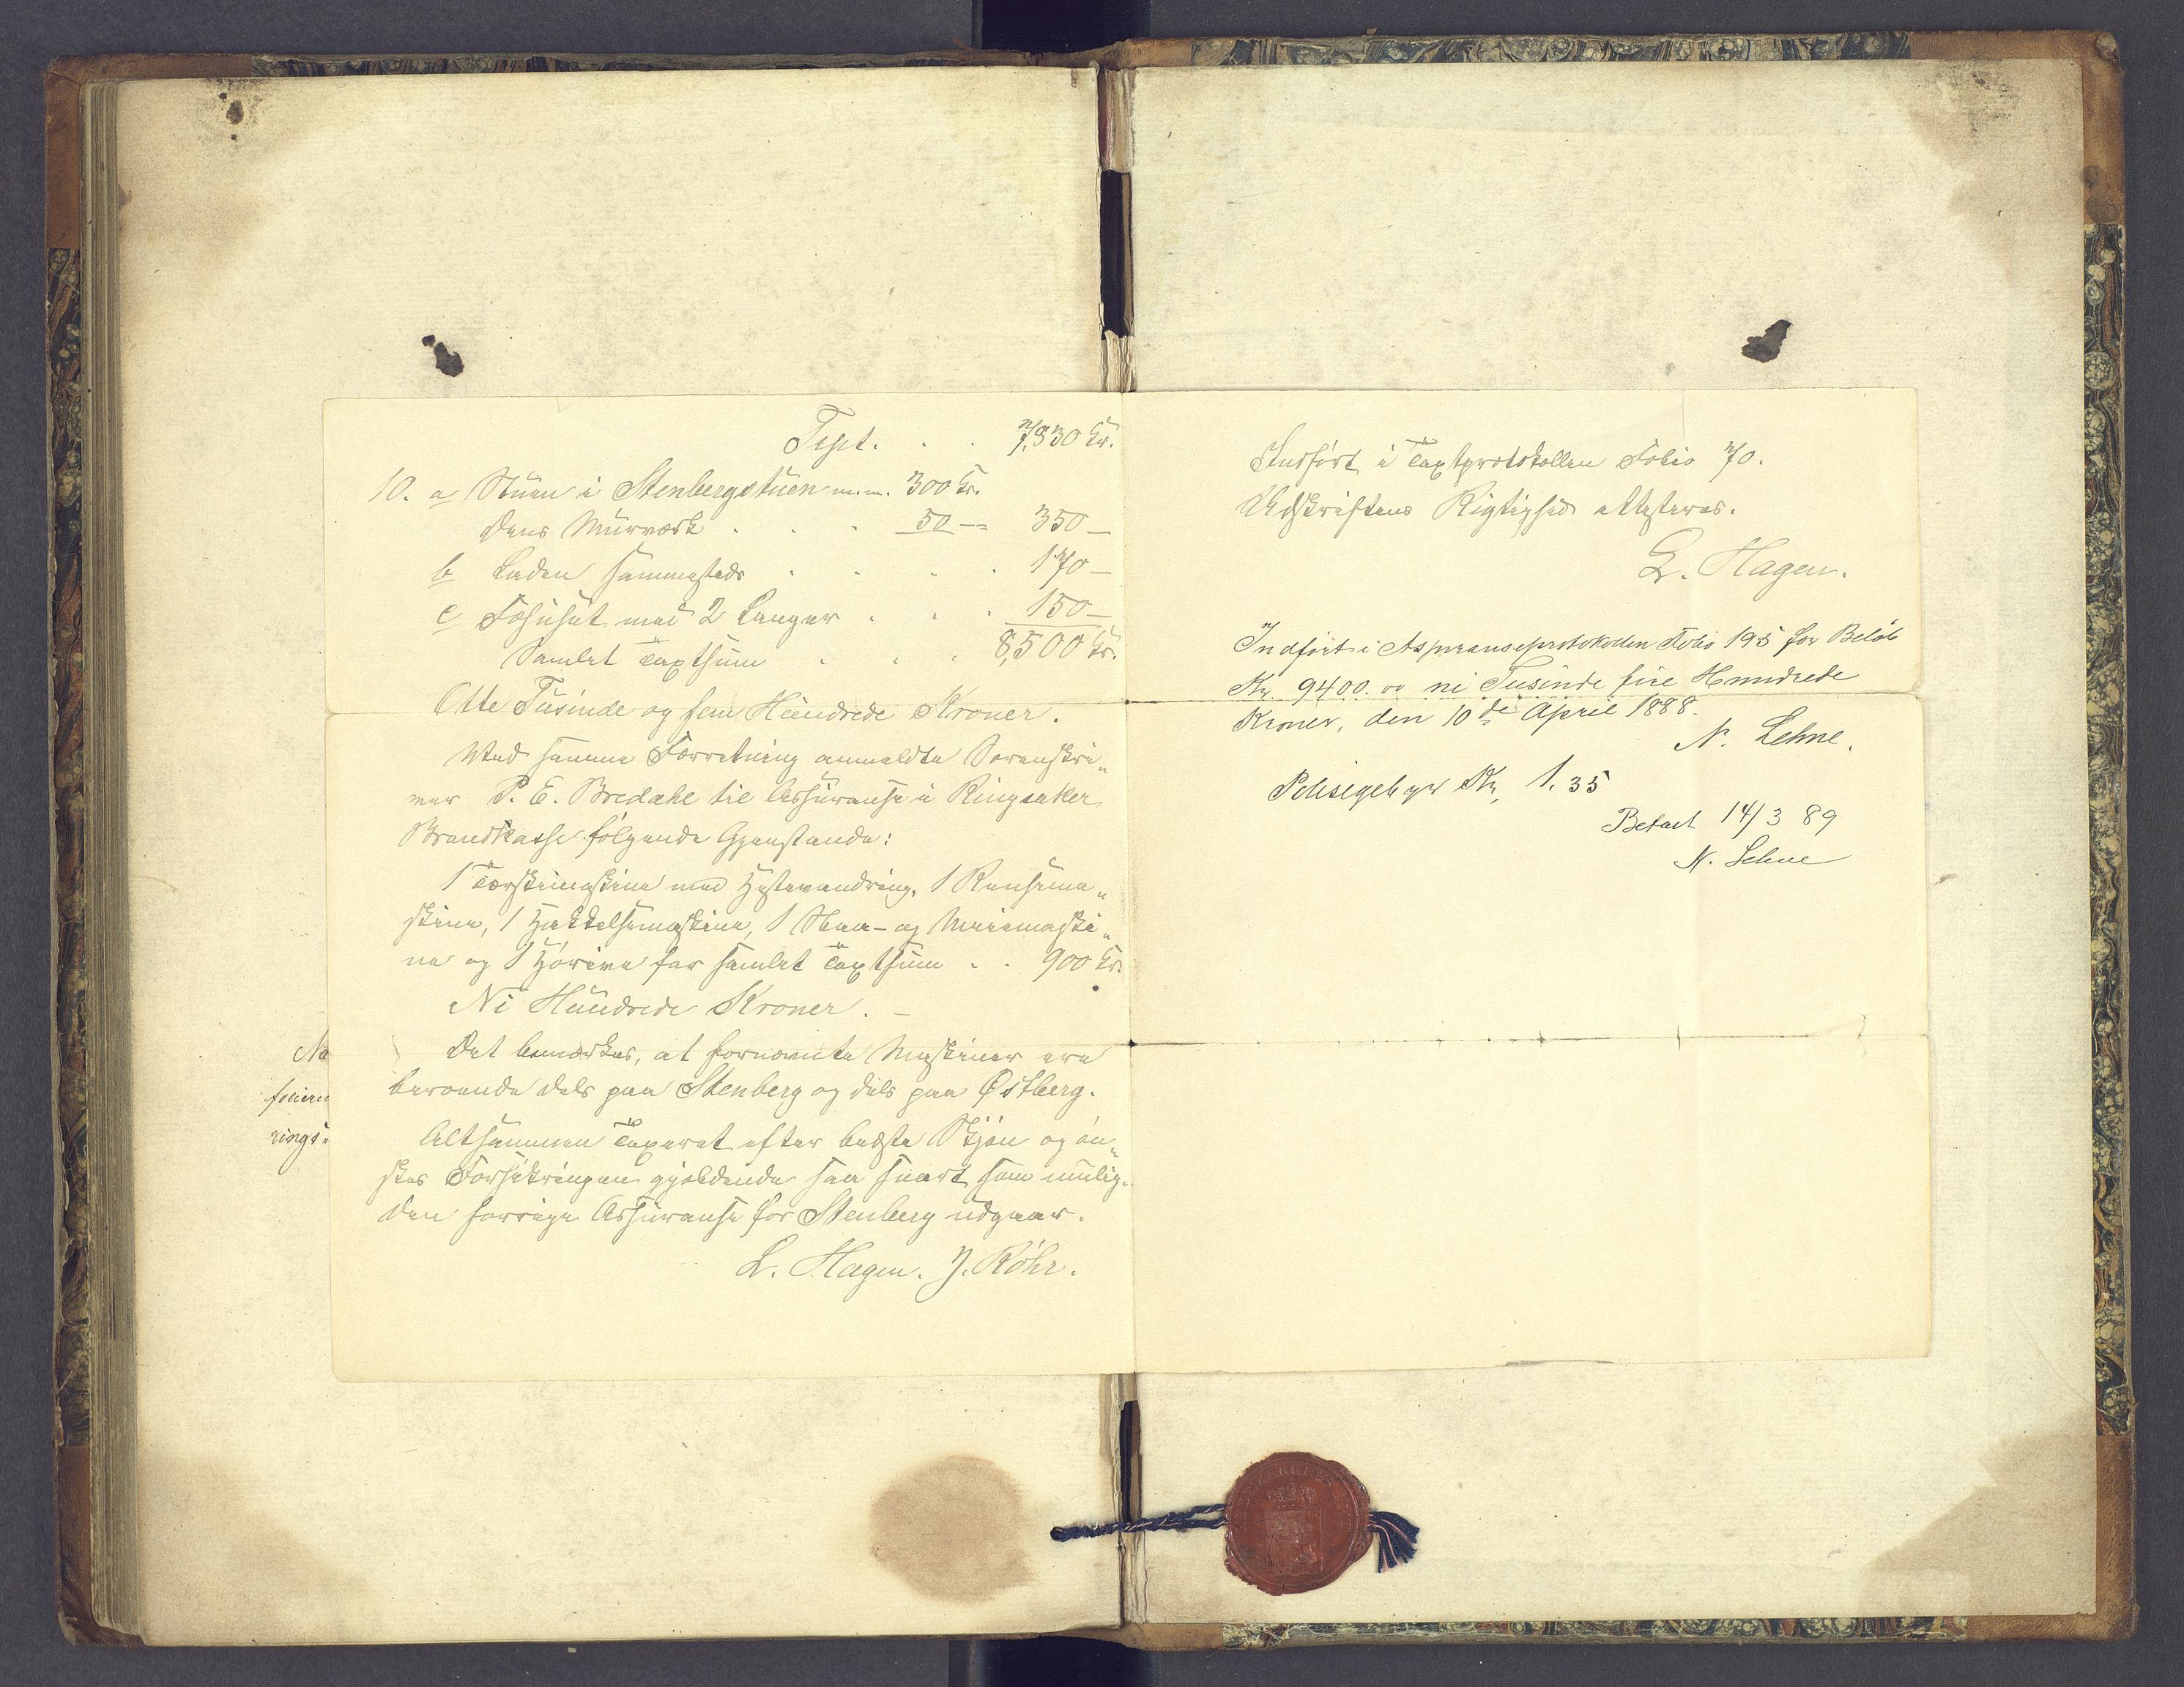 Tspt. . . 7,830 Kr.
10. a Stuen i Stenbergstuen m.m. 300 Kr.
Dens Murværk . . . 50 — 350 —
b Laden sammesteds . . . . 170 —
c Fæhuset med 2 Længer . . . 150 —
Samlet Taxtsum . . . 8,500 Kr.
Otte Tusinde og fem Hundrede Kroner.
Ved samme Forretning anmeldte Sorenskri„
ver P. E. Bredahl til Assuranse i Ringsaker
Brandkasse følgende Gjenstande:
1 Tærskemaskine med Hestevandring, 1 Rensema„
skine, 1 Hakkelsemaskine, 1 Slaa- og Meiemaski„
ne og 1 Hørive for samlet Taxtsum . . 900 Kr.
Ni Hundrede Kroner. —
Det bemærkes, at fornævnte Maskiner ere
beroende dels paa Stenberg og dels paa Østberg.
Altsammen Taxeret efter bedste Skjøn og øn„
skes Forsikringen gjældende saa snart som mulig.
den forrige Assuranse for Stenberg udgaar.
L. Hagen. J. Röhr.
Na
foliere
rings„
Indført i Taxtprotokollen Folio 70.
Udskriftens Rigtighed attesteres.
L. Hagen.
Indført i Aspranseprotokollen Folio 195 for Beløb
Kr. 9400.00 ni Tusinde fire Hundrede
Kroner, den 10de April 1888.
N. Lehne.
Polisegebyr Kr. 1.35
Betalt 14/3 89
N. Lehne